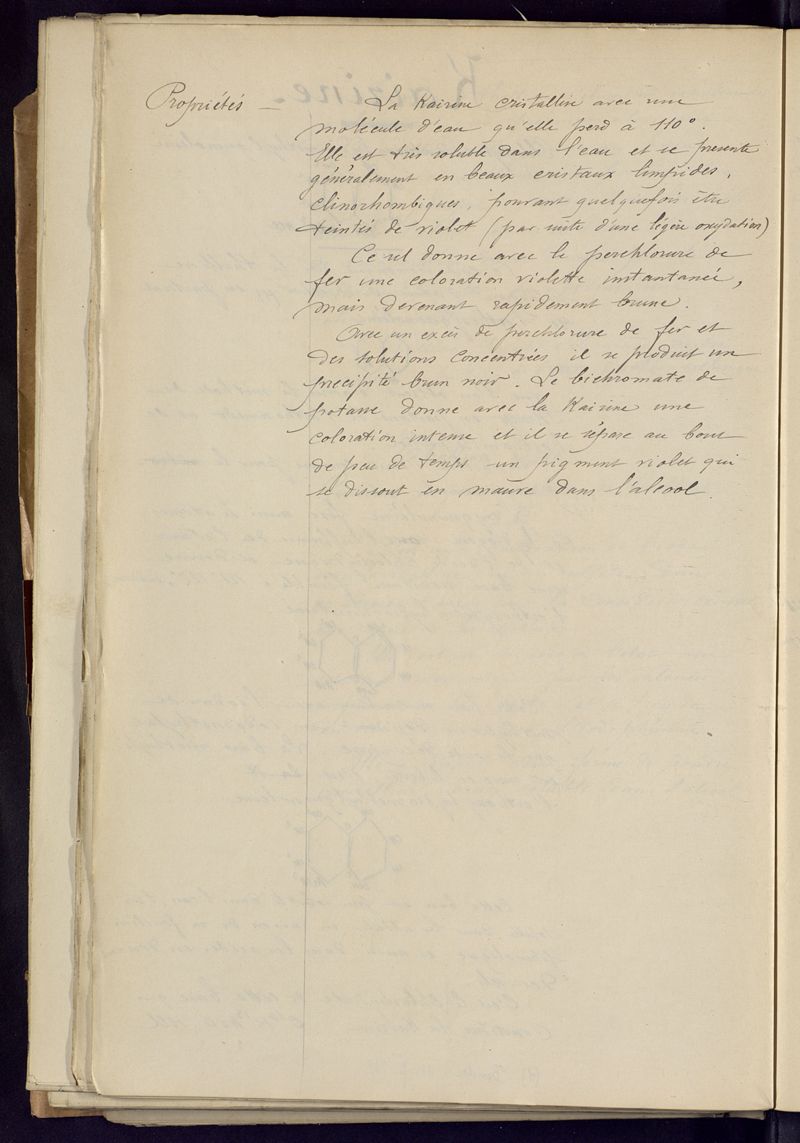 Propriétés — La Kairine cristallise avec une
molécule d'eau qu'elle perd à 110°.
Elle est très soluble dans l'eau et se présente
généralement en beaux cristaux limpides,
clinorhombiques, pouvant quelquefois être
teintés de violet (par suite d'une légère oxydation)
Ce sel donne avec le perchlorure de
fer une coloration violette instantanée,
mais devenant rapidement brune.
Avec un excès de perchlorure de fer et
des solutions concentrées il se produit un
précipité brun noir. Le bichromate de
potasse donne avec la Kairine une
coloration intense et il se sépare au bout
de peu de temps un pigment violet qui
se dissout en mauve dans l'alcool.